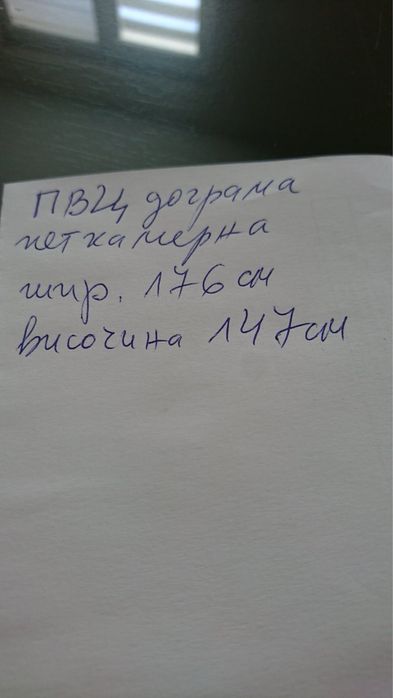 ПВЦ дограма
петкамерна
шир. 176 см
височина 147 см